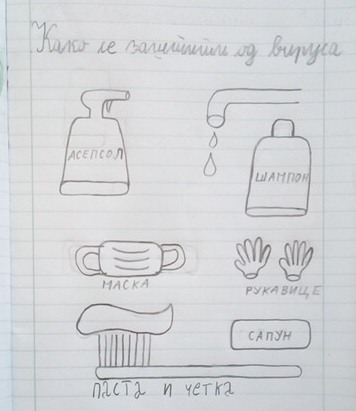 Како се заштитити од вируса
АСЕПСОЛ
ШАМПОН
МАСКА
РУКАВИЦЕ
САПУН
ПАСТА И ЧЕТКА